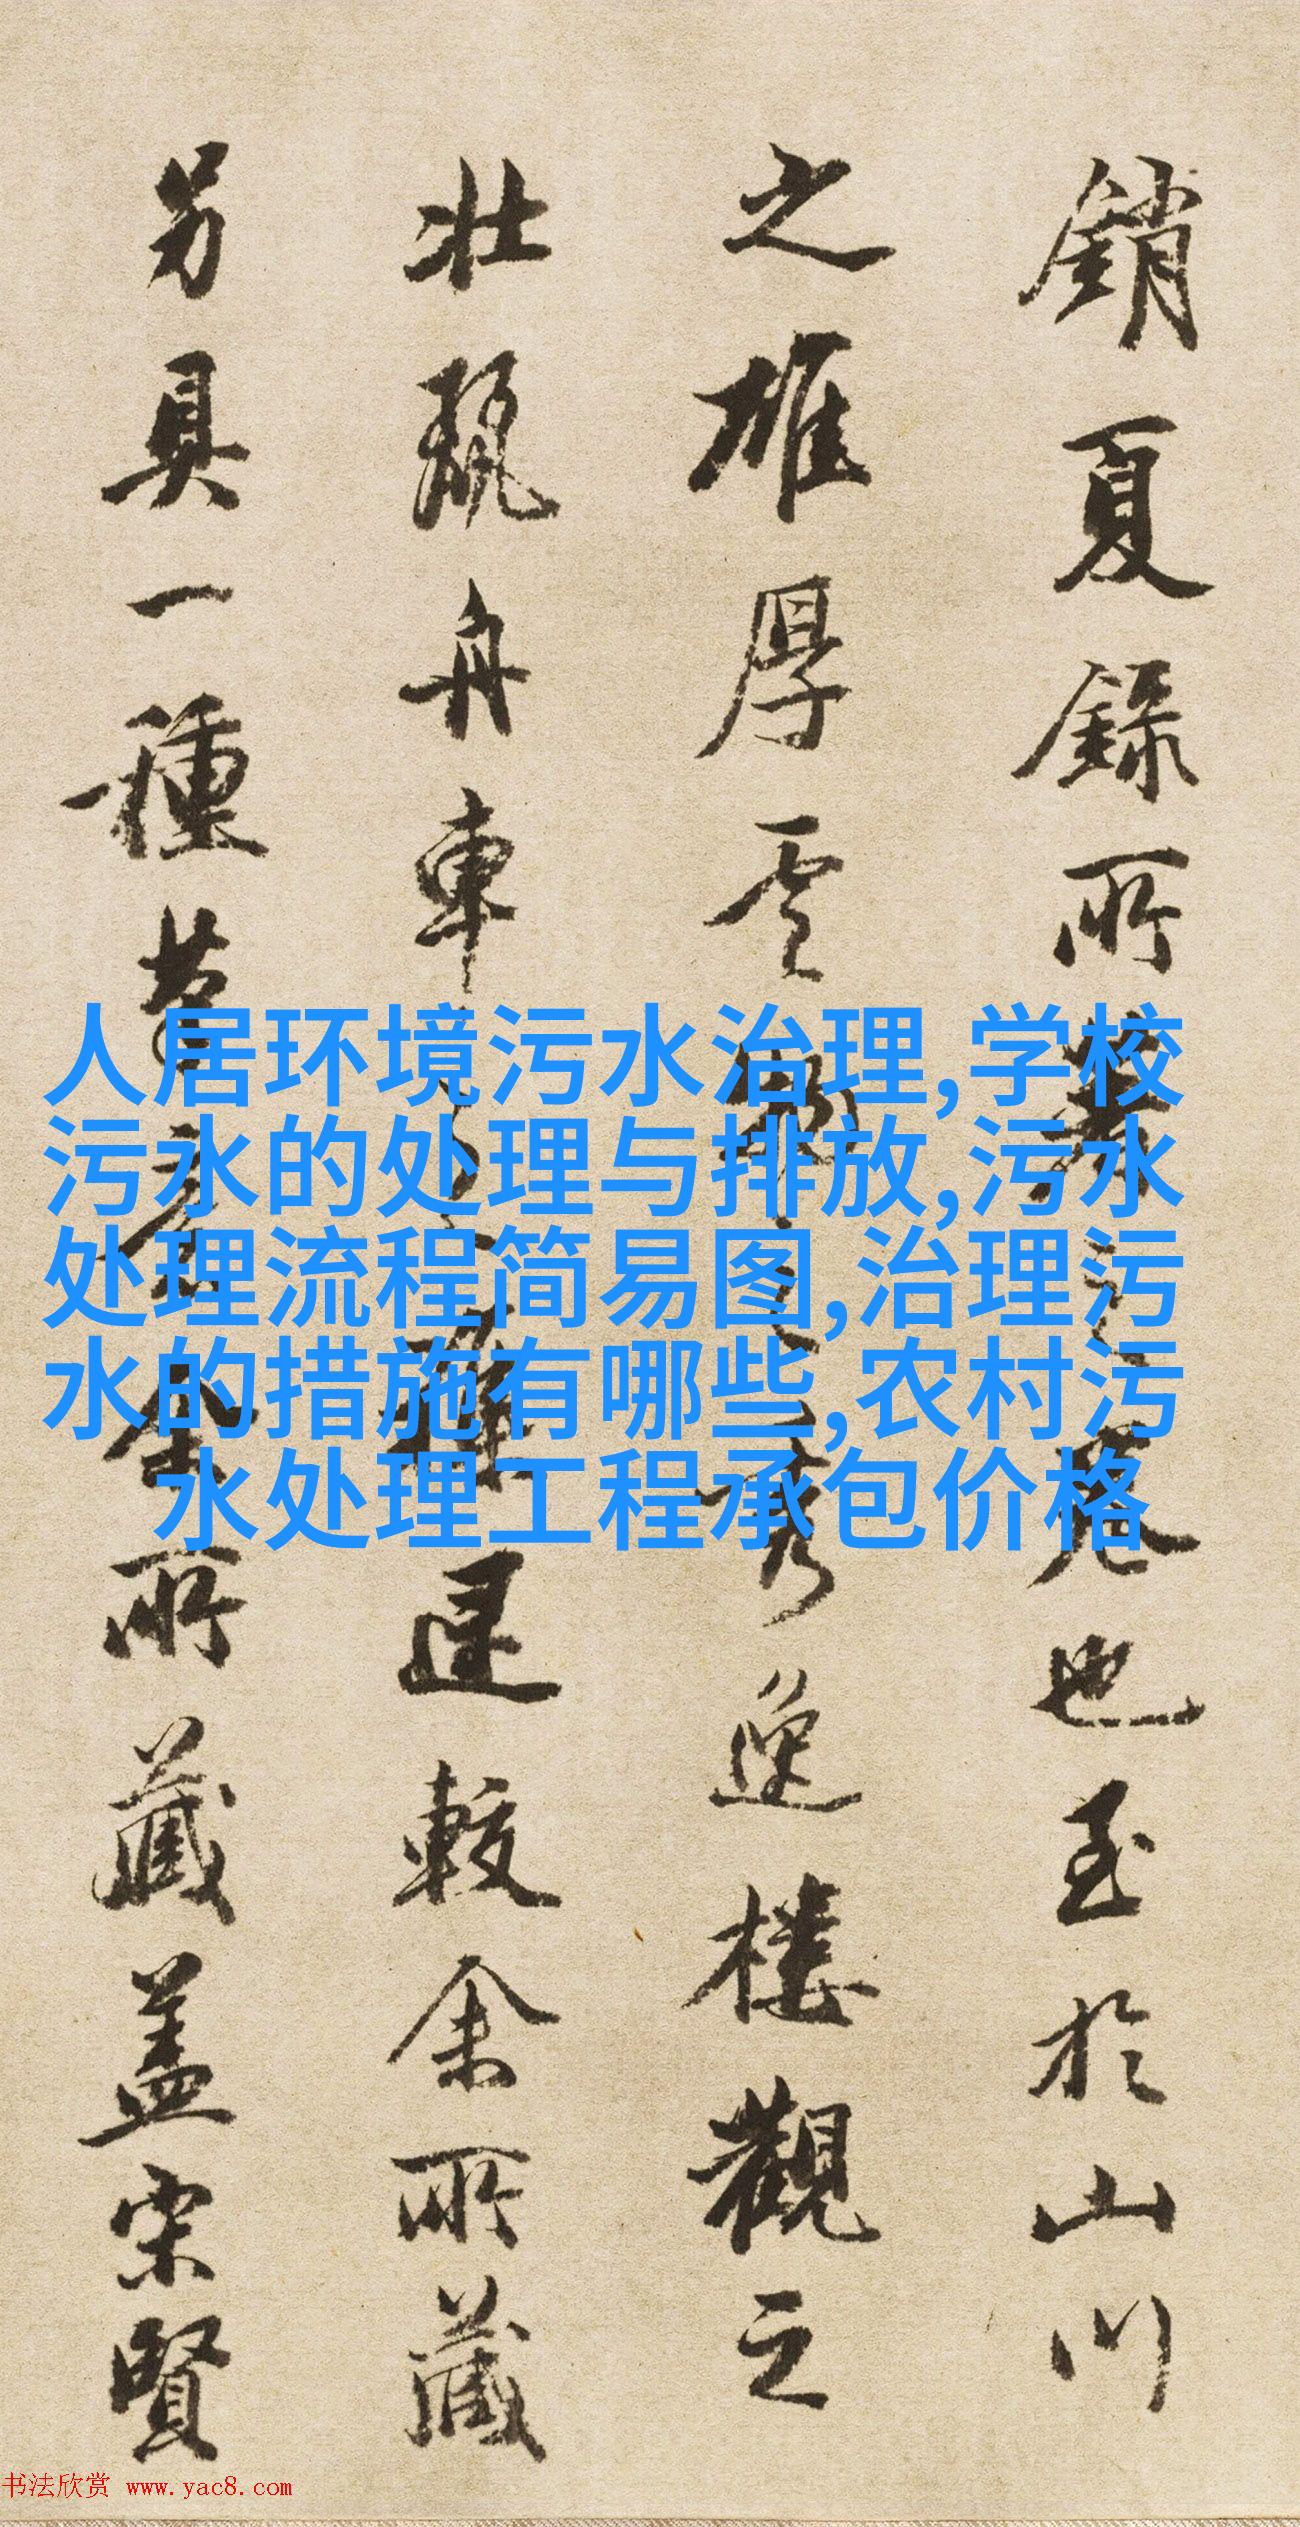 銷夏錄所
也至於山川
之雄厚雲
秀逸樓觀之
壯麗舟車
遲較余所藏
另具一種筆
余所藏蓋宋賢
人居环境污水治理,学校
污水的处理与排放,污水
处理流程简易图,治理污
水的措施有哪些,农村污
水处理工程承包价格
书法欣赏 www.yac8.com